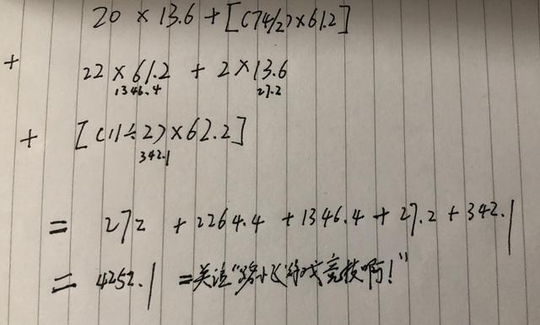 20 × 13.6 + [(74/2)×61.2]
+ 22 × 61.2 + 2×13.6
1346.4 27.2
+ [(11÷2)×62.2]
342.1
= 272 + 2264.4 + 1346.4 + 27.2 + 342.1
= 4252.1 =关注“游戏竞技啊!”